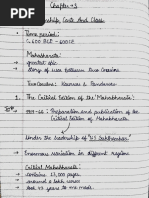 Chapter-3
Kinship, Caste And Class
• Time period:
→ C. 600 BCE - 600 CE
• Mahabharata:
→ greatest epic
→ story of war between two cousins
Two Cousins: Kauravas & Pandavas
1. The Critical Edition of the Mahabharata:
→ 1919-66: Preparation and publication of the
Critical Edition of Mahabharata
Under the leadership of "VS Sukthankar"
→ Enormous variation in different regions
Critical Mahabharata:
→ contains 13,000 pages
→ around a lakh verses
→ took 47 years to be made